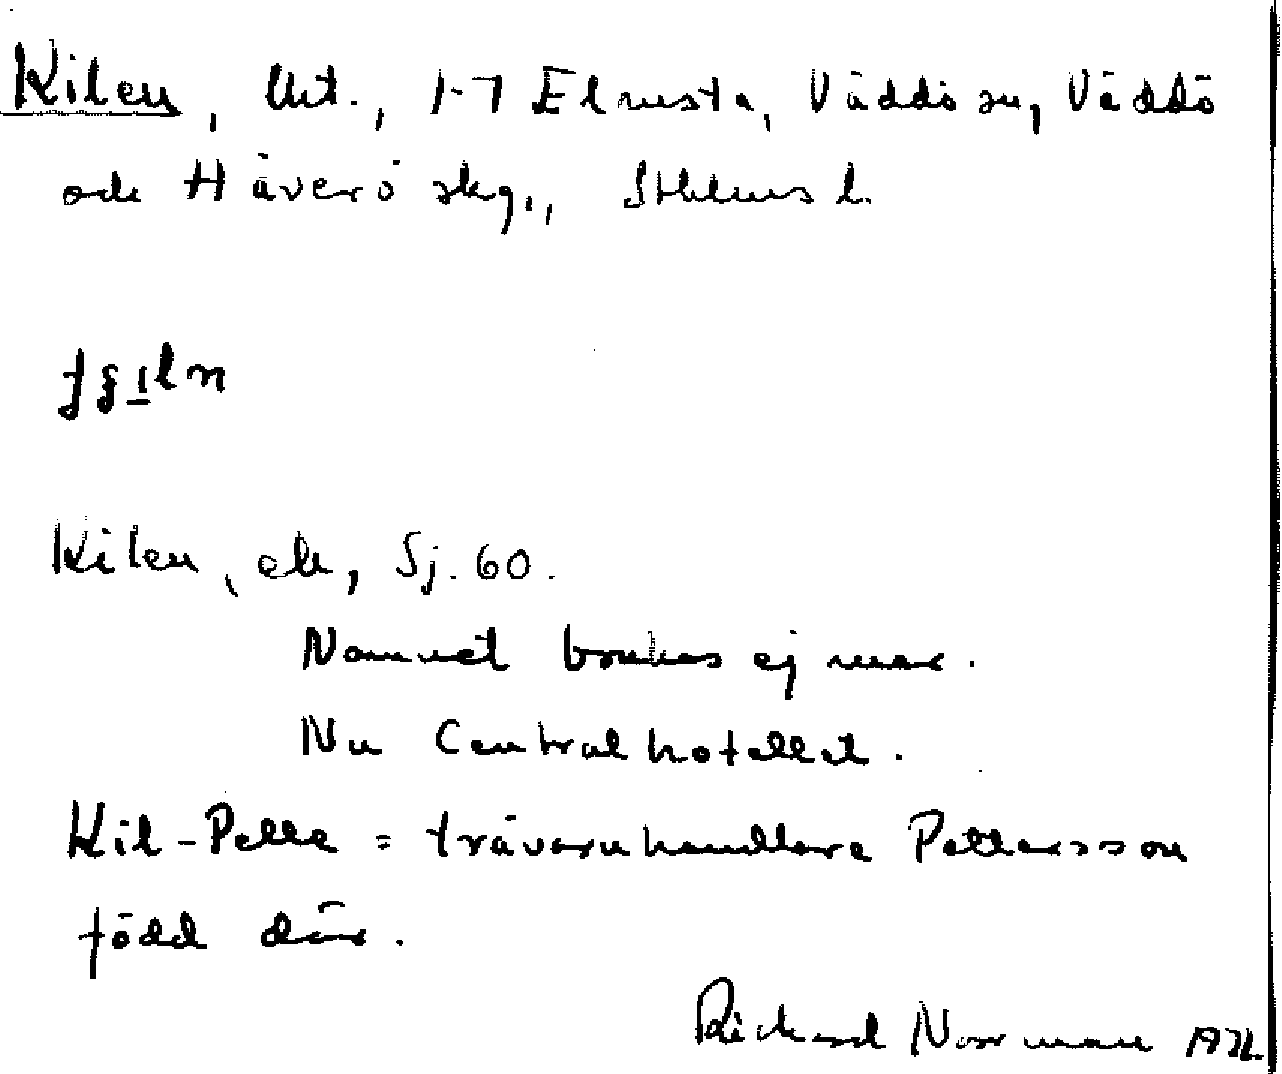 Kilen, lht., 1-7 Elmsta, Väddö sn, Väddö
och Häverö skg., Sthlms l.
Kilen, ek, Sj. 60.
Namnet brukas ej mer.
Nu Centralhotellet.
Kil-Pelle = trävaruhandlare Pettersson
född där.
Richard Norrman 1972